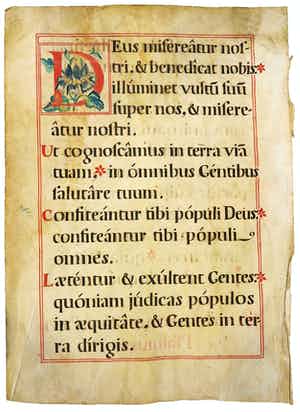 Deus misereâtur nos-
tri, & benedicat nobis:*
illúminet vultū suū
super nos, & misere-
âtur nostri.
Ut cognoscâmus in terra viā
tuam,* in ómnibus Géntibus
salutâre tuum.
Confiteántur tibi pópuli Deus:*
confiteántur tibi pópuli
omnes.
Læténtur & exúltent Gentes:*
quóniam júdicas pópulos
in æquitâte, & Gentes in ter-
ra dírigis.